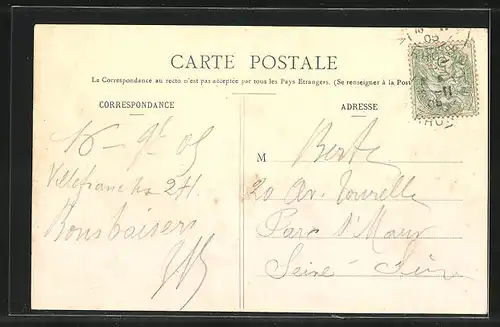 CARTE POSTALE
La Correspondance au recto n'est pas acceptée par tous les Pays Etrangers. (Se renseigner à la Post
CORRESPONDANCE
ADRESSE
16 - 9 05
Villefranche 2 H.
Bons baisers
M Berte
20 Av. Tourelle
Parc St Maur
Seine